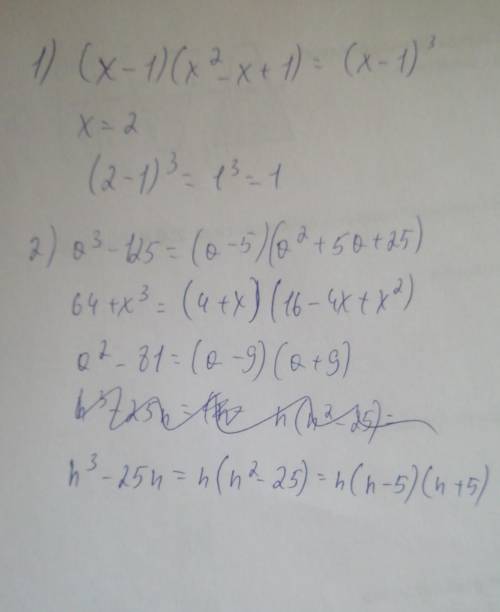 1) (x-1)(x²-x+1) = (x-1)³
x = 2
(2-1)³ = 1³ = 1
2) a³-125 = (a-5)(a²+5a+25)
64+x³ = (4+x)(16-4x+x²)
a²-81 = (a-9)(a+9)
h³-25h = h(h²-25) =
h³-25h = h(h²-25) = h(h-5)(h+5)